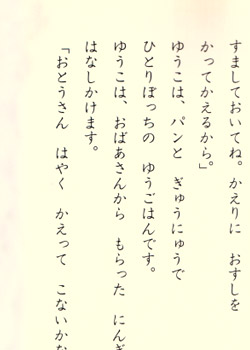 すましておいてね。かえりに　おすしを
かってかえるから。」
ゆうこは、パンと　ぎゅうにゅうで
ひとりぼっちの　ゆうごはんです。
ゆうこは、おばあさんから　もらった　にんぎ
はなしかけます。
「おとうさん　はやく　かえって　こないかな